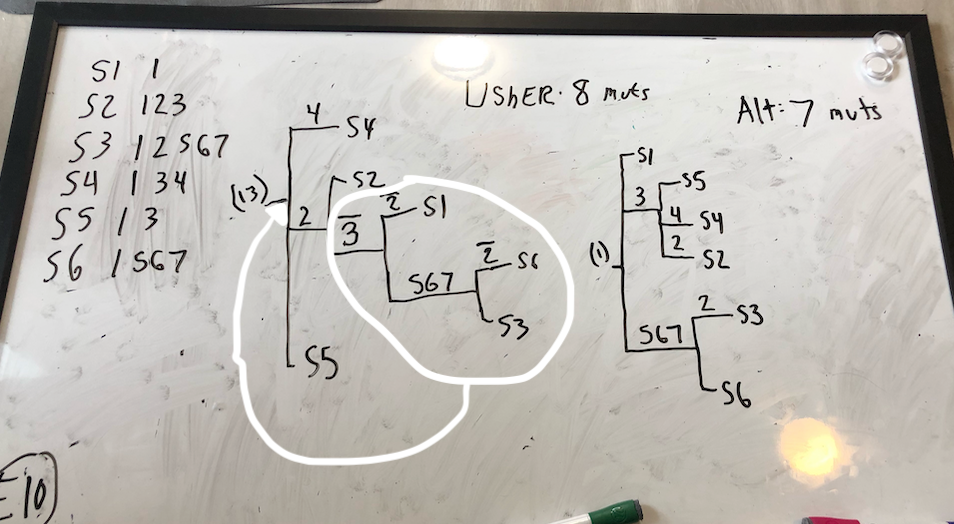 S1 1
S2 123
S3 12567
S4 134
S5 13
S6 1567
UShER: 8 muts
4 S4
(13)
2 S2
3̅ 2̅ S1
567 2̅ S6
S3
S5
Alt: 7 muts
S1
3 S5
4 S4
2 S2
(1)
567 2 S3
S6
E10
8